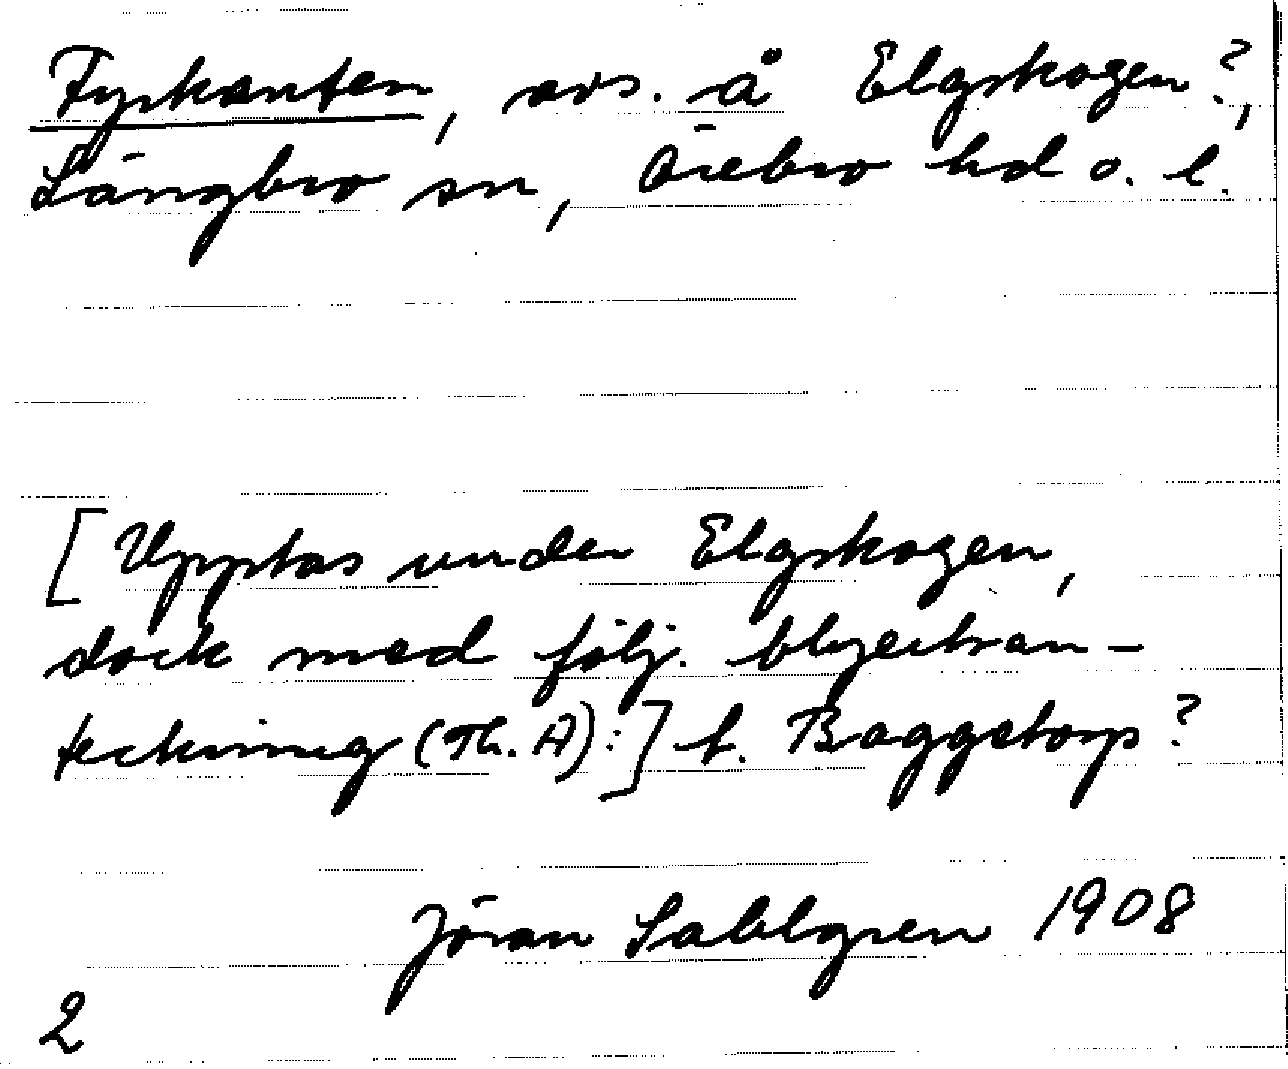 Fyrkanten, avs. å Elgskogen?,
Längbro sn, Örebro hd o. l.
[Upptas under Elgskogen,
dock med följ. blyertsan-
teckning (Th. A):] t. Baggetorp?
Jöran Sahlgren 1908
2